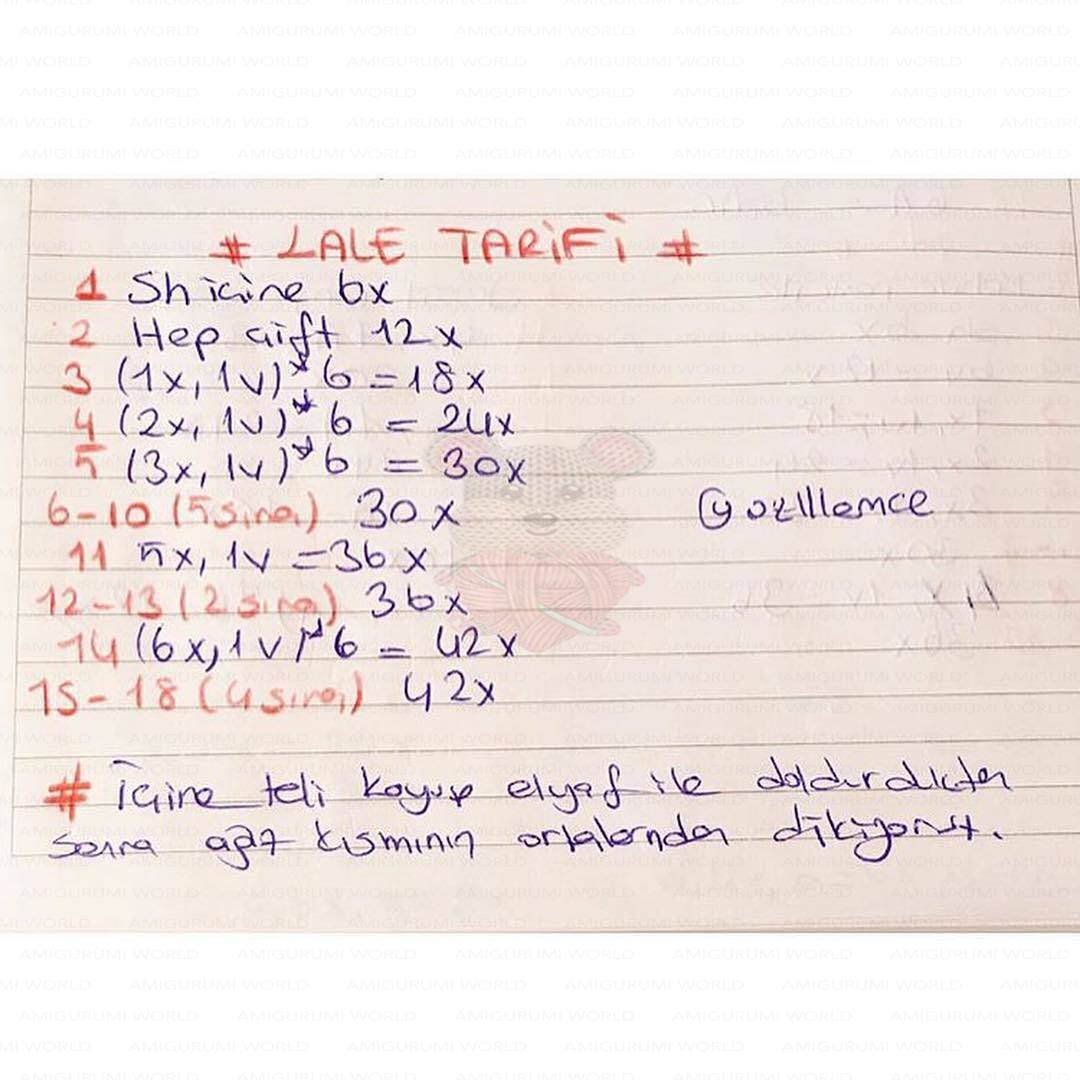 AMIGURUMI WORLD
# LALE TARİFİ #
1 Sh içine 6x
2 Hep çift 12x
3 (1x, 1v)*6 = 18x
4 (2x, 1v)*6 = 24x
5 (3x, 1v)*6 = 30x
6-10 (5 sıra) 30x
11 5x, 1v = 36x
12-13 (2 sıra) 36x
14 (6x, 1v)*6 = 42x
15-18 (4 sıra) 42x
# İçine teli koyup elyaf ile doldurdukten
sonra ağız kısmının ortalarından dikiyoruz.